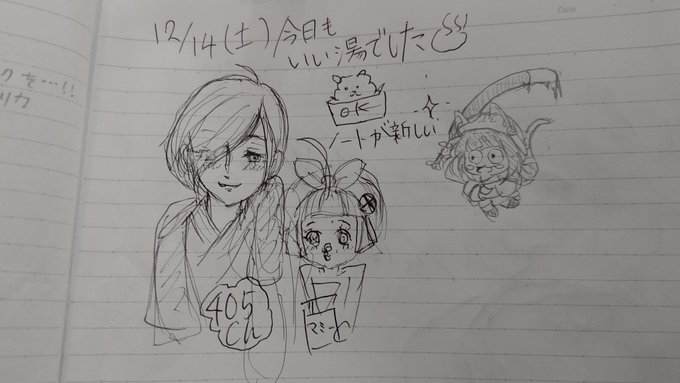 12/14(土)今日も
いい湯でした♨
OK
ノートが新しい
405
くん
マミーと
Date
クを…!!
リカ